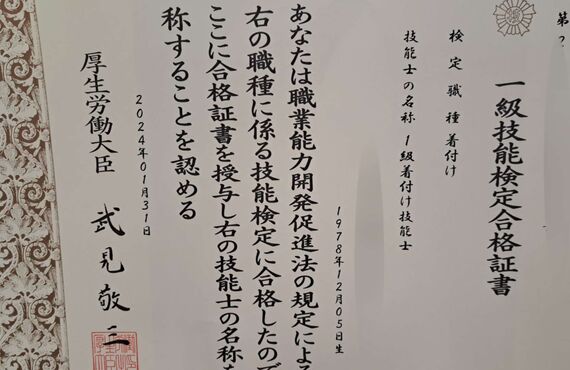 第2
一級技能検定合格証書
検定職種 着付け
技能士の名称 1級着付け技能士
1978年12月05日生
あなたは職業能力開発促進法の規定による
右の職種に係る技能検定に合格したので
ここに合格証書を授与し右の技能士の名称を
称することを認める
2024年01月31日
厚生労働大臣 武見敬三